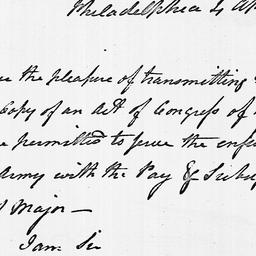 Philadelphia 4 Ap
the pleasure of transmitting
Copy of an Act of Congress of
permitted to serve the
Army with the Pay & Subs
Major —
I am Sir